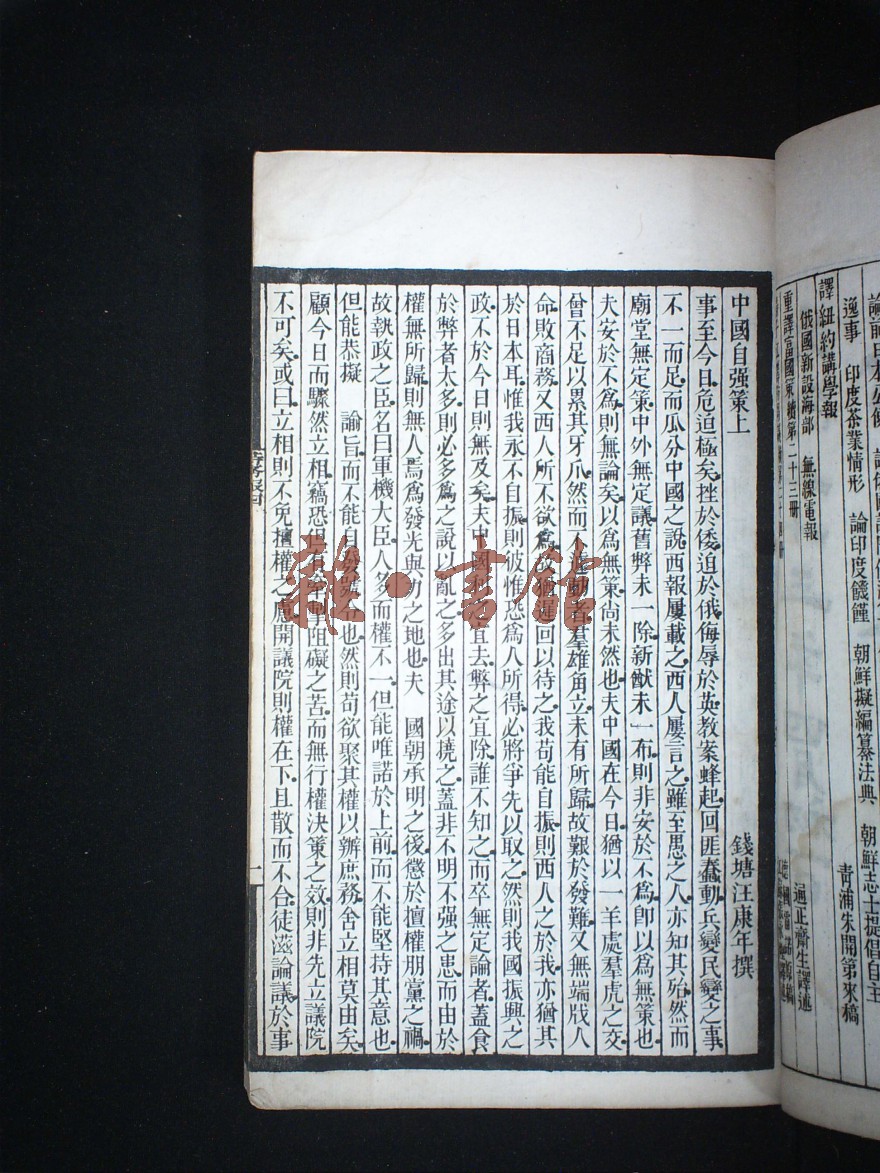 論前日本公使
逸事　印度茶業情形　論印度饑饉　朝鮮擬編纂法典　朝鮮志士提倡自主
青浦朱開第來稿
譯紐約講學報
俄國新設海部　無線電報
重譯富國策續第二十三册
正齋生譯述
中國自强策上　錢塘汪康年撰
事至今日危迫極矣挫於倭迫於俄侮辱於英教案蜂起回匪蠢動兵變民變之事
不一而足而瓜分中國之說西報屢載之西人屢言之雖至愚之人亦知其殆然而
廟堂無定策中外無定議舊弊未一除新猷未一布則非安於不爲卽以爲無策也
夫安於不爲則無論矣以爲無策尚未然也夫中國在今日猶以一羊處羣虎之交
曾不足以累其牙爪然而不遽動者羣雄角立未有所歸故艱於發難又無端戕人
命敗商務又西人所不欲爲故猶遲回以待之我苟能自振則西人之於我亦猶其
於日本耳惟我永不自振則彼惟恐爲人所得必將爭先以取之然則我國振興之
政不於今日則無及矣夫中國利之宜去弊之宜除誰不知之而卒無定論者蓋食
於弊者太多則必多爲之說以亂之多出其途以撓之蓋非不明不强之患而由於
權無所歸則無人焉爲發光與力之地也夫　國朝承明之後懲於擅權朋黨之禍
故執政之臣名曰軍機大臣人多而權不一但能唯諾於上前而不能堅持其意也
但能恭擬　諭旨而不能自發號令也然則苟欲聚其權以辦庶務舍立相莫由矣
顧今日而驟然立相竊恐但有牽掣阻礙之苦而無行權決策之效則非先立議院
不可矣或曰立相則不免擅權之慮開議院則權在下且散而不合徒滋論議於事
一
雜·書館